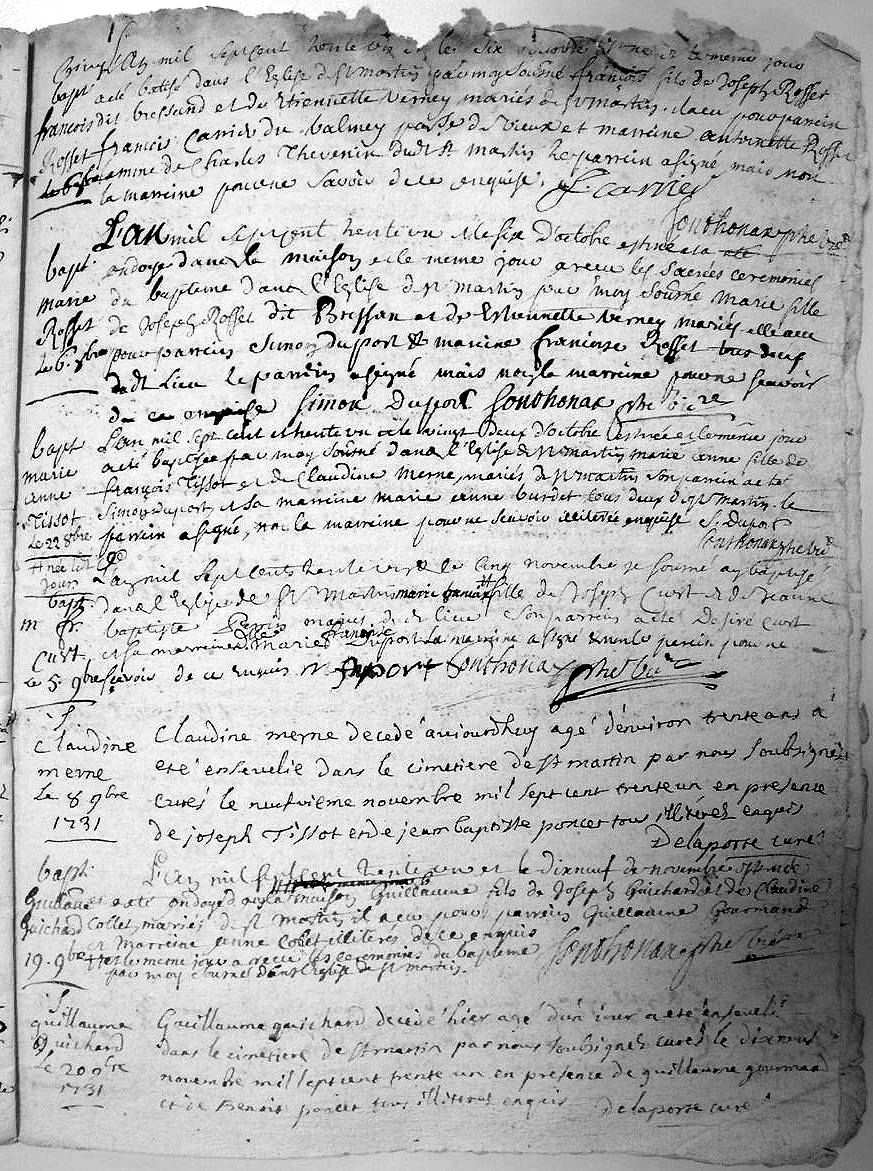 mil sept cent trente un et les six est né et le même jour
bapt a été batisé dans l'Eglise de St martin par moy sousné françois fils de Joseph Rosset
francois dit bressand et de Etiennette verney mariés de St martin. il a eu pour parrein
Rosset francois Carrier du balmey et marreine antoinette Rosset
le 6 8bre femme de Charles Thevenin dudt St martin le parrein a signé mais non
la marreine pour ne savoir de ce enquise. f. carrier
Sonthonax ptre vic re
L'an mil sept cent trente un et le six d'octobre est née et a été
bapt ondoyé dans la maison et le meme jour a receu les sacrées ceremonies
marie du bapteme dans l'Eglise de St martin par moy sousné marie fille
Rosset de Joseph Rosset dit Bressan et de Etiennette verney mariés elle a eu
le 6. 8bre pour parrein Simon duport et marreine françoise Rosset tous deux
dudt Lieu le parrein a signé mais non la marreine pour ne scavoir
de ce enquise Simon Duport Sonthonax ptre vic re
bapt L'an mil sept cent et trente un et le vingt deux d'octobre est née et le même jour
marie a été baptisée par moy sousné dans l'Eglise de St martin marie anne fille de
anne françois Tissot et de Claudine merne, mariés de St martin son parrein a été
Tissot Simon duport, et sa marreine marie anne burdet tous deux de St martin. le
Le 22 8bre perrein a signé, non la marreine pour ne scavoir illiterée enquise S. Duport
Sonthonax ptre vic
jour L'an mil sept cents trente un et le cinq novembre je sousné ay baptisé
bapt. dans l'Eglise de St Martin marie françoise fille de Joseph Curt et de Jeanne
m fr. baptiste Perrin mariés du dt lieu son parrein a été Desiré Curt
Curt et sa marreine Dlle Marie françoise Duport la marreine a signé et non le perein pour ne
Le 5. 9bre sçavoir de ce enquis M f duport Sonthonax ptre vic re
Claudine Claudine merne decedé aujourdhuy agé d'environ trente ans a
merne eté ensevelie dans le cimetiere de St martin par nous soubsigné
Le 8 9bre curés le neufvieme novembre mil sept cent trente un en presence
1731 de joseph Tissot et de jean baptiste poncet tous illiterez enquis
Delaporte curé
bapt L'an mil sept cent trente un et le dixneuf de novembre est né
Guillaume et a été ondoyé en la maison Guillaume fils de Joseph Guichard et de Claudine
Guichard Collet, mariés de St Martin il a eu pour parrein Guillaume Gourmand
et Marreine anne Colet illiterés de ce enquis
19. 9bre et le meme jour a receu les ceremonies du bapteme Sonthonax ptre vic re
par moy sousné dans l'Eglise de St martin.
guillaume Guillaume guichard decedé hier agé d'un jour a eté enseveli
guichard dans le cimetiere de St martin par nous soubsignez curés le
Le 20 9bre novembre mil sept cent trente un en presence de guillaume gourmand
1731 et de Benoit poncet tous illiterez enquis delaporte curé